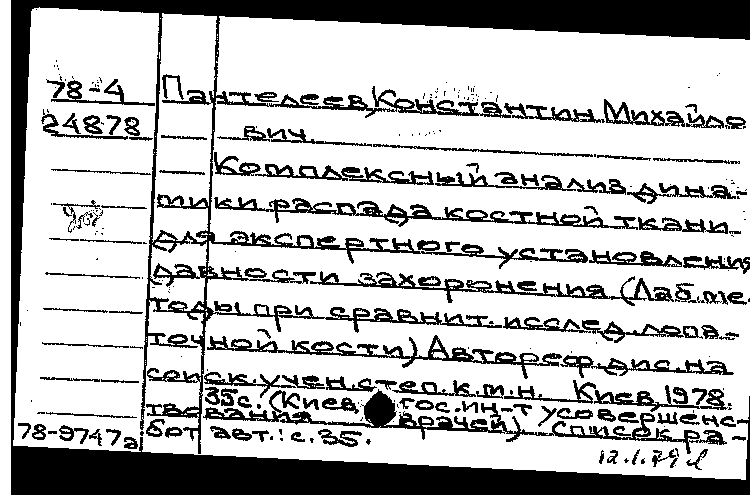 78-4 Пантелеев, Константин Михайло
24878 вич.
Комплексный анализ дина-
мики распада костной ткани
для экспертного установления
давности захоронения (Лаб. ме-
тоды при сравнит. исслед. лопа-
точной кости) Автореф. дис. на
соиск. учен. степ. к. м. н. Киев, 1978.
35 с. (Киев. гос. ин-т усовершенс-
твования врачей) Список ра-
78-9747а бот авт.: с. 35.
12.1.79